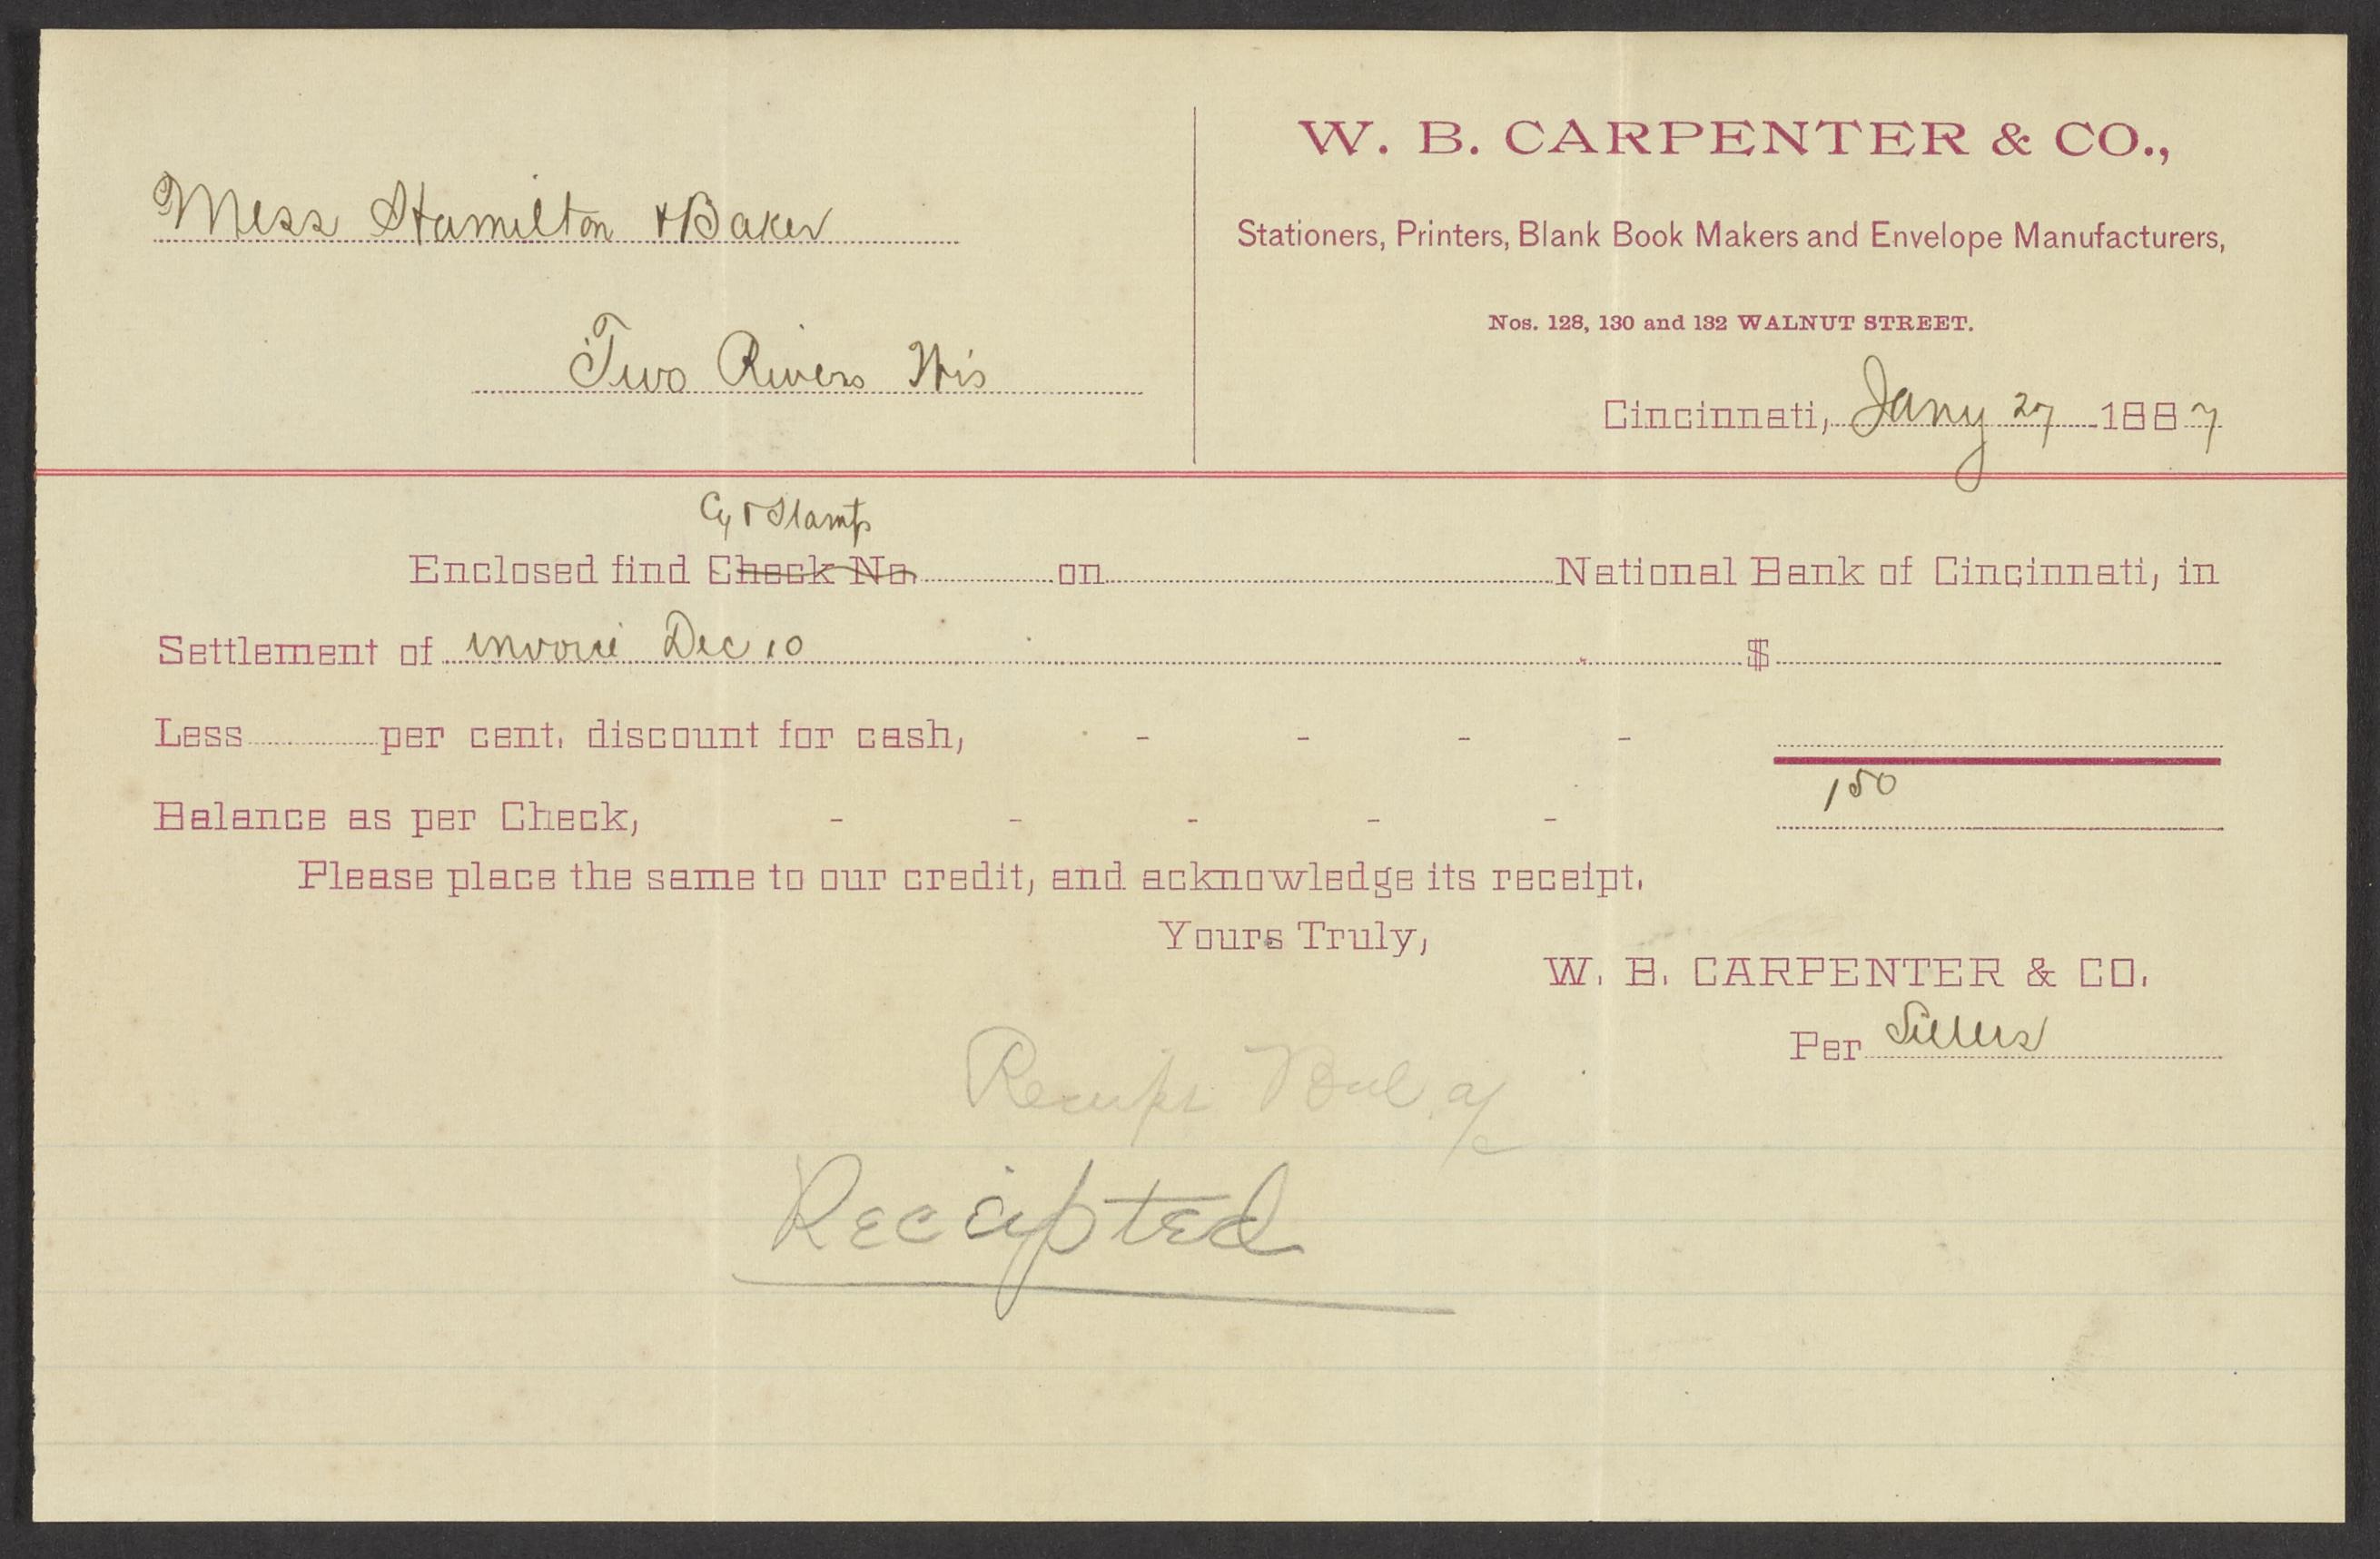 W. B. CARPENTER & CO.,
Stationers, Printers, Blank Book Makers and Envelope Manufacturers,
Nos. 128, 130 and 132 WALNUT STREET.
Mess Hamilton & Baker
Two Rivers Wis
Cincinnati, Jany 27 1887
Cy & Stamps
Enclosed find Check No. on National Bank of Cincinnati, in
Settlement of invoice Dec 10 $
Less per cent. discount for cash, - - - -
150
Balance as per Check, - - - - -
Please place the same to our credit, and acknowledge its receipt.
Yours Truly,
W. B. CARPENTER & CO.
Per
Receipt Bal a/c
Receipted